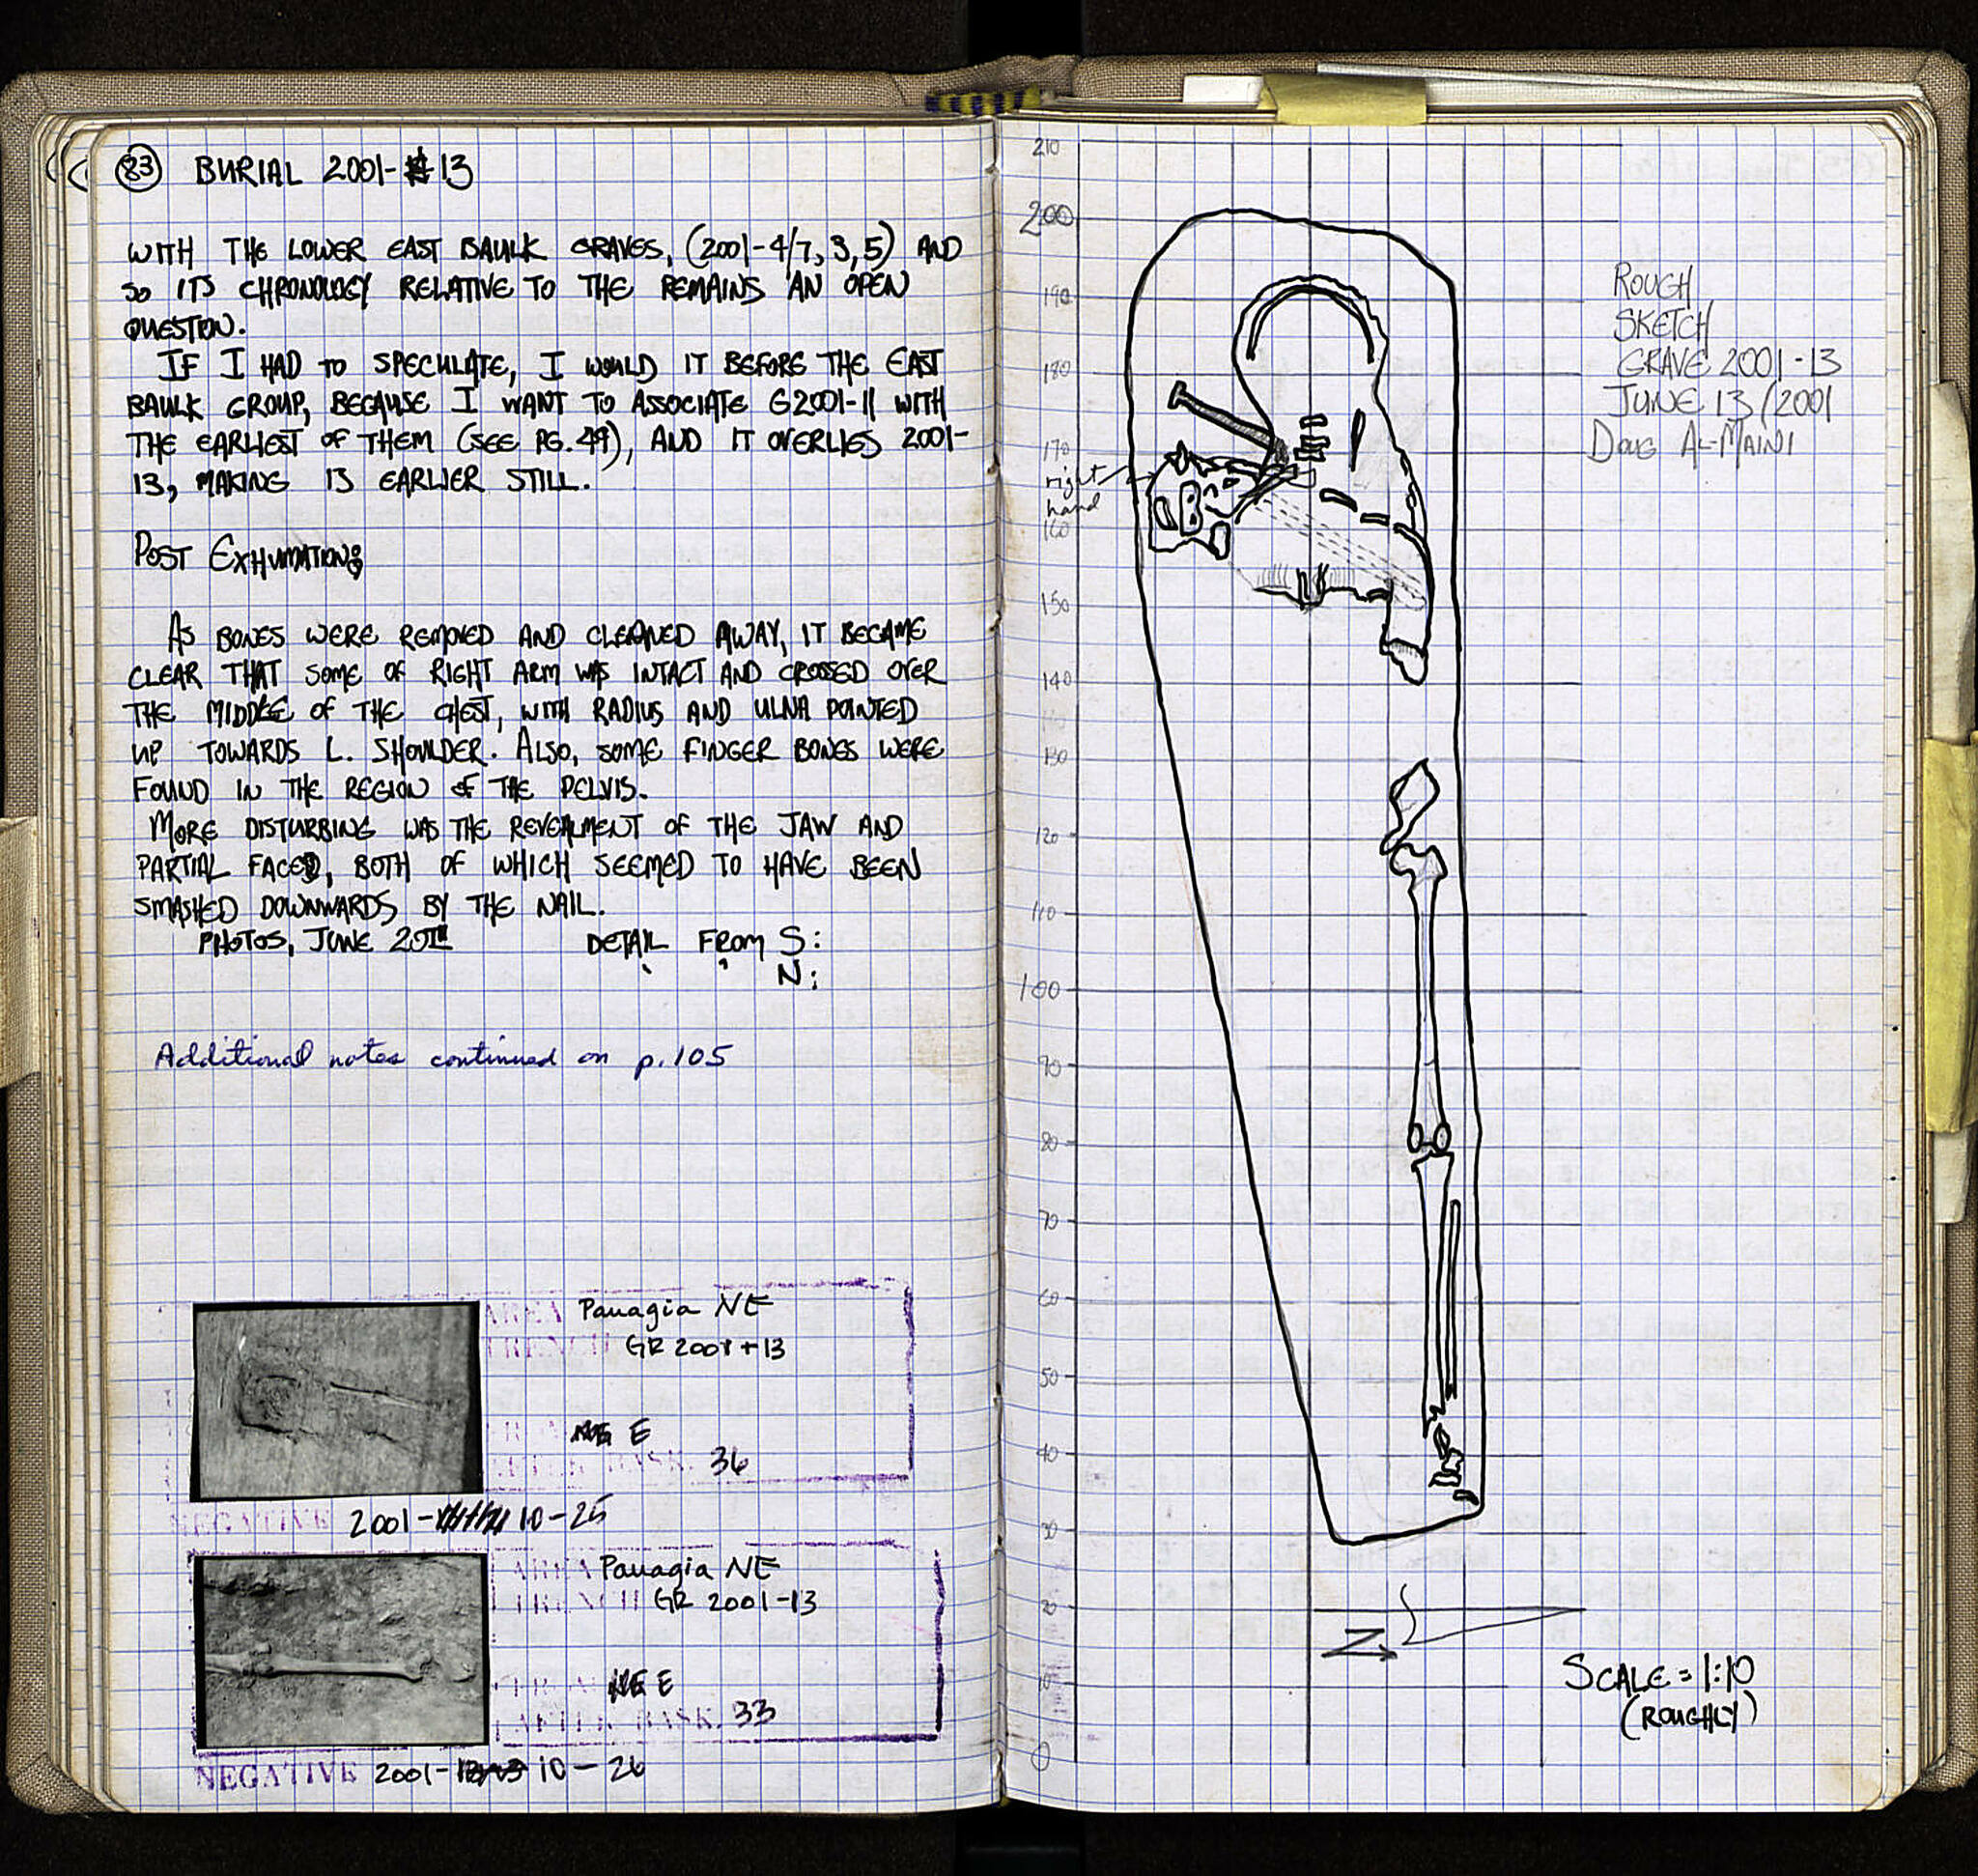 83 BURIAL 2001-13
WITH THE LOWER EAST BAULK GRAVES, (2001-4/7, 3, 5) AND
SO ITS CHRONOLOGY RELATIVE TO THE REMAINS AN OPEN
QUESTION.
IF I HAD TO SPECULATE, I WOULD IT BEFORE THE EAST
BAULK GROUP, BECAUSE I WANT TO ASSOCIATE G2001-11 WITH
THE EARLIEST OF THEM (SEE PG. 49), AND IT OVERLIES 2001-
13, MAKING 13 EARLIER STILL.
POST EXHUMATION:
AS BONES WERE REMOVED AND CLEANED AWAY, IT BECAME
CLEAR THAT SOME OF RIGHT ARM WAS INTACT AND CROSSED OVER
THE MIDDLE OF THE CHEST, WITH RADIUS AND ULNA POINTED
UP TOWARDS L. SHOULDER. ALSO, SOME FINGER BONES WERE
FOUND IN THE REGION OF THE PELVIS.
MORE DISTURBING WAS THE REVEALMENT OF THE JAW AND
PARTIAL FACE, BOTH OF WHICH SEEMED TO HAVE BEEN
SMASHED DOWNWARDS BY THE NAIL.
PHOTOS, JUNE 20TH DETAIL FROM S:
N:
Additional notes continued on p. 105
AREA Panagia NE
TRENCH GR 2001-13
FROM E
AFTER BASK. 36
NEGATIVE 2001-10-25
AREA Panagia NE
TRENCH GR 2001-13
FROM E
AFTER BASK. 33
NEGATIVE 2001-10-26
210
200
190
180
170
right
hand
160
150
140
130
120
110
100
90
80
70
60
50
40
30
20
10
0
ROUGH
SKETCH
GRAVE 2001-13
JUNE 13/2001
DOUG AL-MAINI
N
SCALE = 1:10
(ROUGHLY)